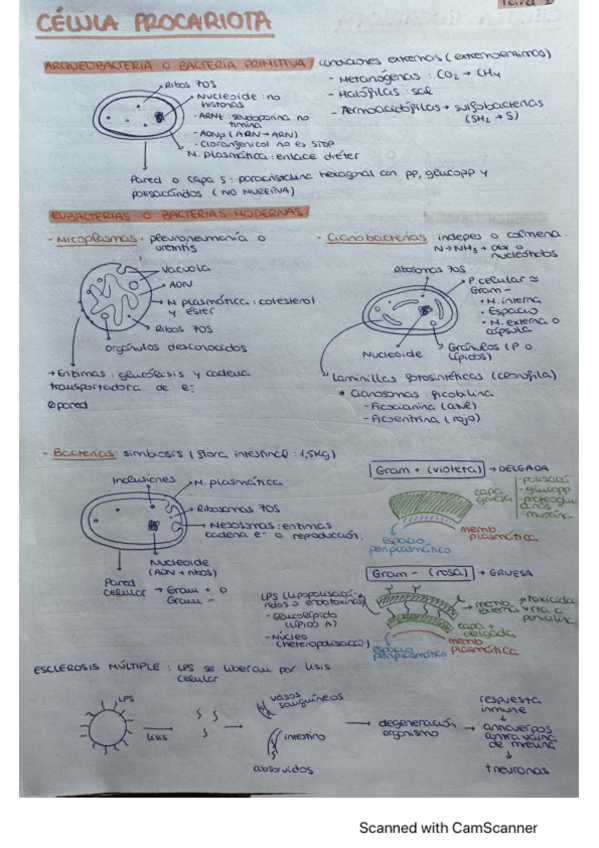 CÉLULA PROCARIOTA
ARQUEOBACTERIA O BACTERIA PRIMITIVA
condiciones extremas (extremoenzimas)
- Metanógenas : CO2 → CH4
- Halófilas : sal
- Termoacidófilas → sulfobacterias
(SH2 → S)
Ribos 70S
Nucleoide : no
histonas
- ARNt : seudouporina no
timina
- ADNp (ARN → ARN)
- cloranfenicol no es stop
M. plasmática : enlace diéter
Pared o capa S : paracristalina hexagonal con PP, glucopp y
polisacáridos (NO MUREÍNA)
EUBACTERIAS O BACTERIAS MODERNAS
- Micoplasmas : pleuroneumonía o
uretritis
Vacuola
ADN
M plasmática : colesterol
y éster
Ribos 70S
orgánulos desconocidos
→ Enzimas : glucólisis y cadena
transportadora de e-
∅ pared
- Cianobacterias indepes o colmena.
N → NH3 →
nucleótidos
Ribosomas 70S
P. celular ≈
Gram -
• M. interna
• Espacio
• M. externa o
cápsula
Gránulos (P o
lípidos)
Nucleoide
laminillas fotosintéticas (clorofila)
• Cianosomas : ficobilina
- Ficocianina (azul)
- Ficoeritrina (rojo)
- Bacterias : simbiosis (flora intestinal : 1,5kg)
Inclusiones
M. plasmática
Ribosomas 70S
Mesosomas : enzimas
cadena e- o reproducción.
Nucleoide
(ADN + ribos)
Pared
celular → Gram + o
Gram -
Gram + (violeta) → DELGADA
capa
gruesa
- polisacá
- glucopp
- mureína
espacio
periplasmático
memb
plasmática
Gram - (rosa) → GRUESA
LPS (lipopolisacá-
ridos o endotoxinas)
- Glucolípido
(LÍPIDO A)
- Núcleo
(heteropolisacá)
memb
externa
→ toxicidad
→ rta a
penicilina
capa
delgada
espacio
periplasmático
memb
plasmática
ESCLEROSIS MÚLTIPLE : LPS se liberan por lisis
celular
LPS
lisis
vasos
sanguíneos
intestino
absorvidos
degeneración
organismo
respuesta
inmune
anticuerpos
contra vaina
de mielina
↑ neuronas
Scanned with CamScanner